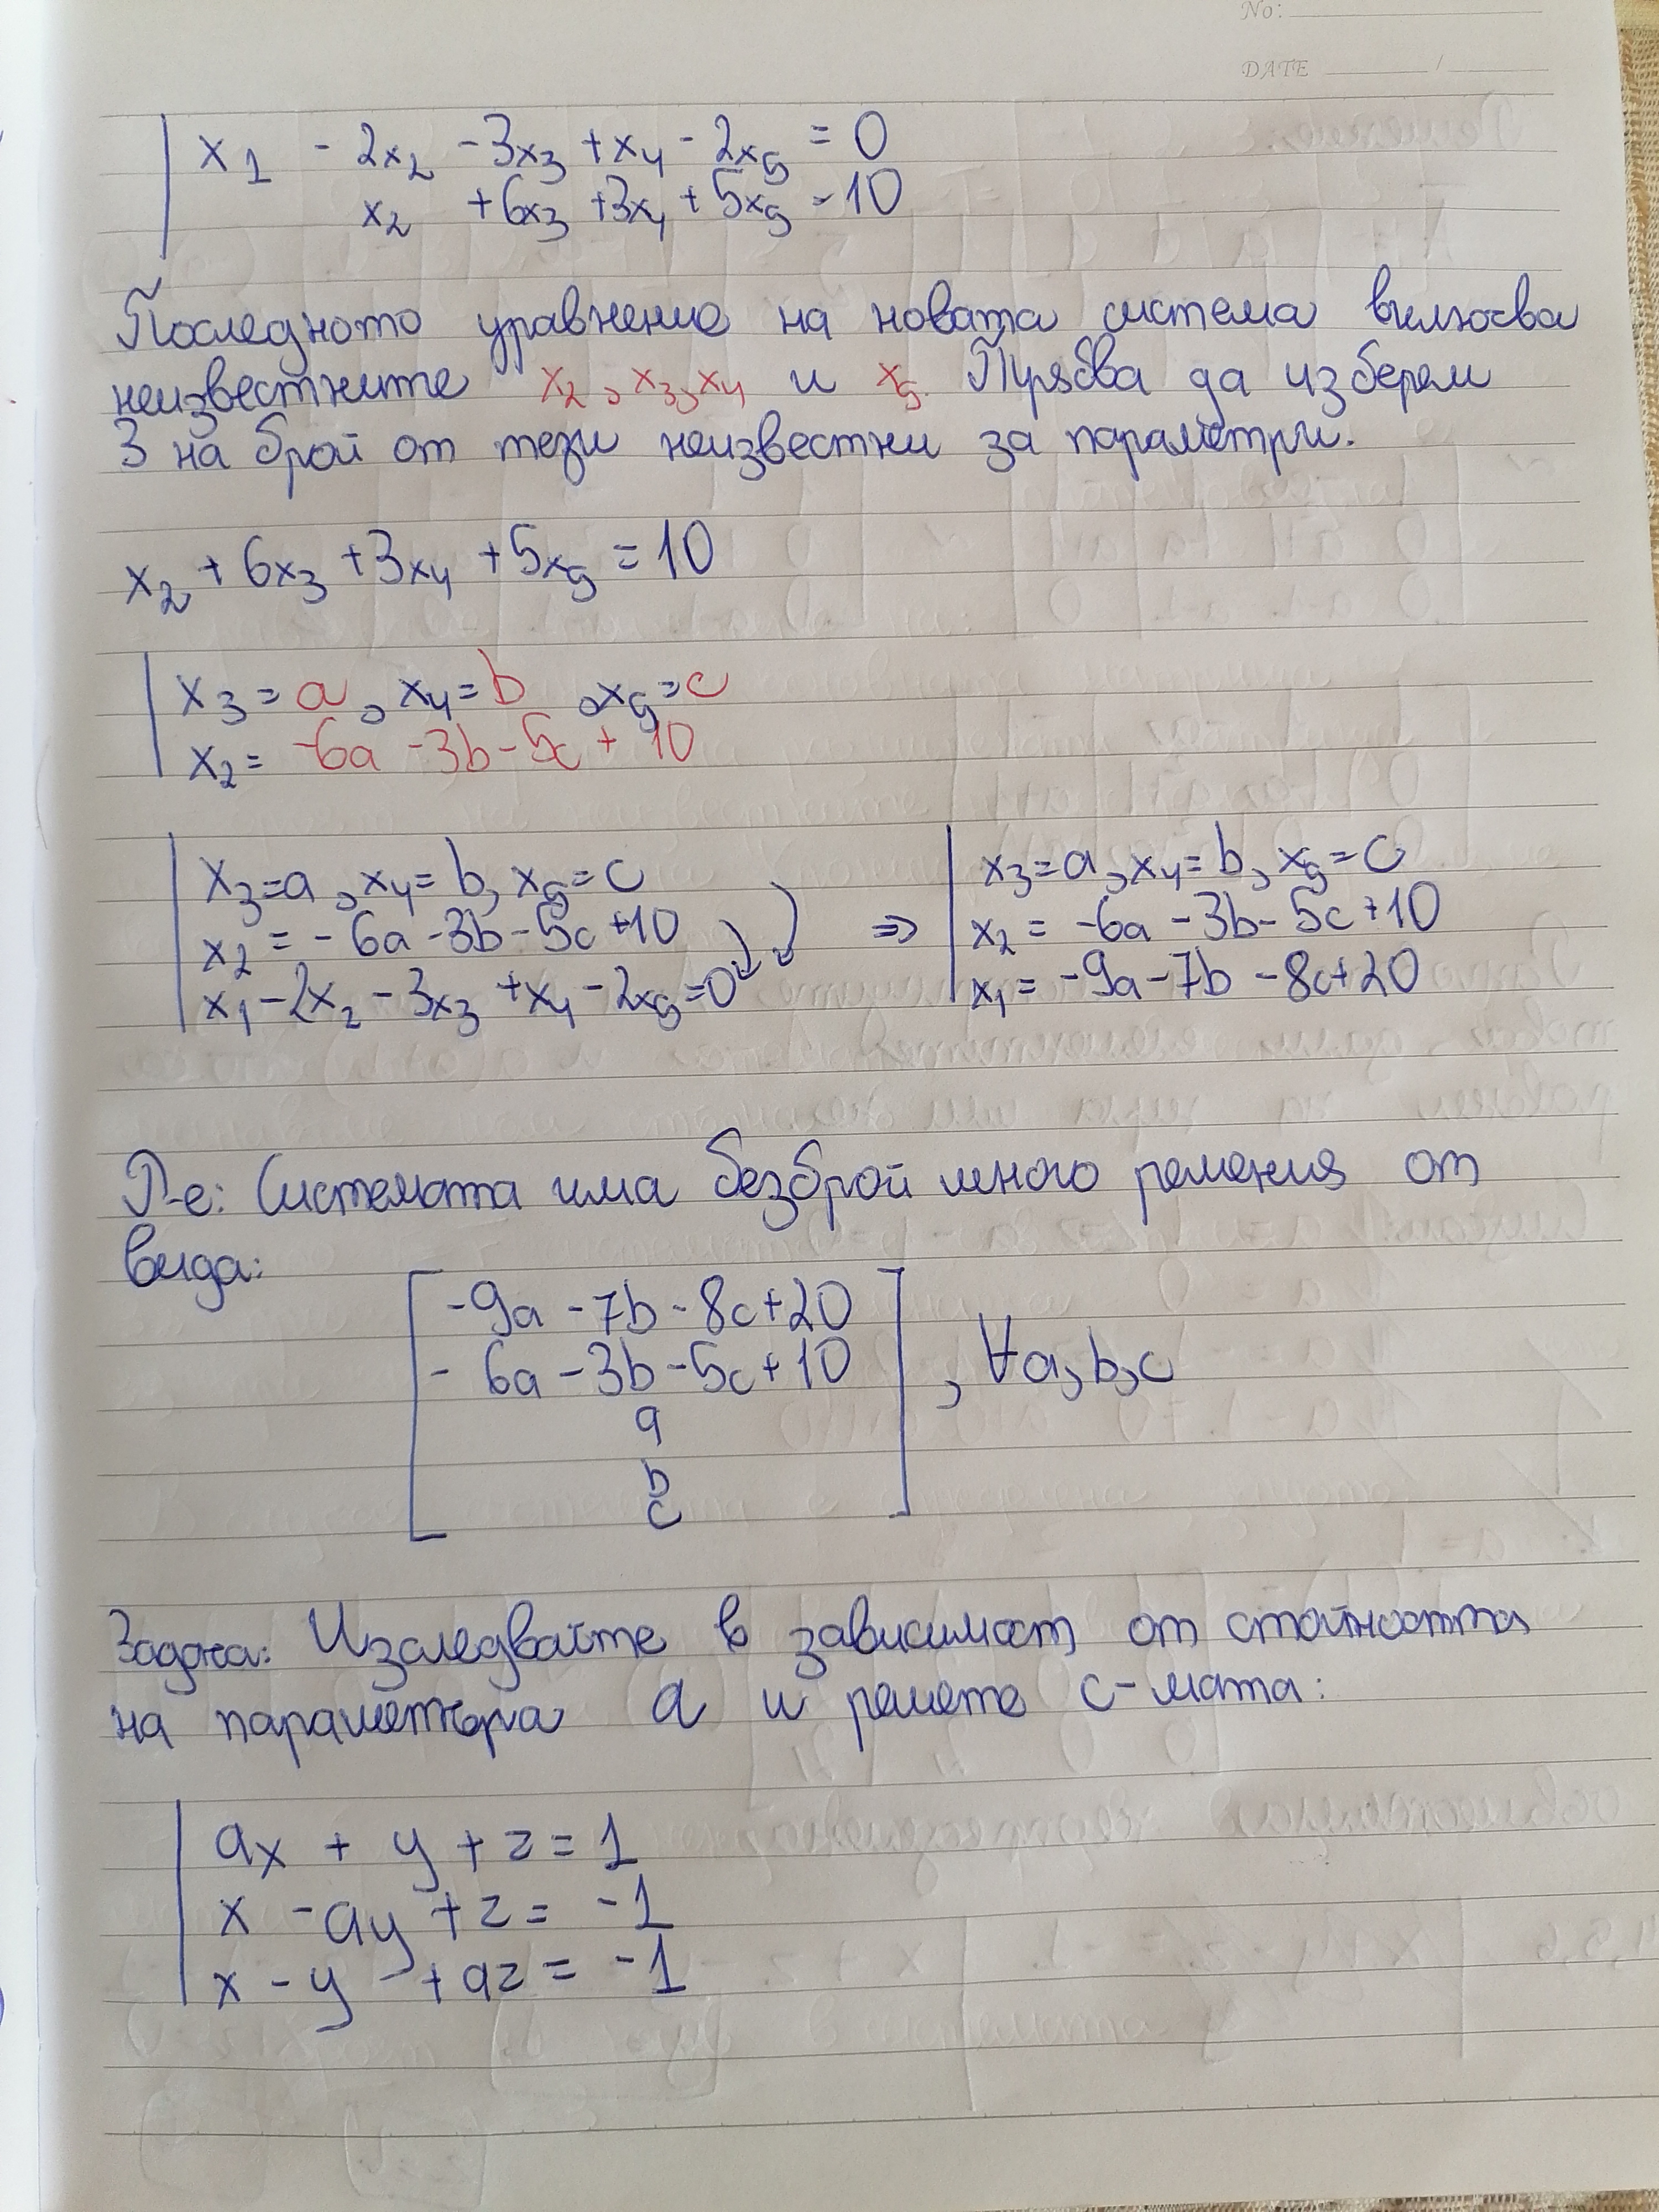 No:
DATE /
x₁ - 2x₂ - 3x₃ + x₄ - 2x₅ = 0
x₂ + 6x₃ + 3x₄ + 5x₅ = 10
Последното уравнение на новата система включва
неизвестните x₂, x₃, x₄ и x₅. Трябва да изберем
3 на брой от тези неизвестни за параметри.
x₂ + 6x₃ + 3x₄ + 5x₅ = 10
x₃ = a, x₄ = b, x₅ = c
x₂ = -6a - 3b - 5c + 10
x₃ = a, x₄ = b, x₅ = c ⇒ x₃ = a, x₄ = b, x₅ = c
x₂ = -6a - 3b - 5c + 10 x₂ = -6a - 3b - 5c + 10
x₁ - 2x₂ - 3x₃ + x₄ - 2x₅ = 0 x₁ = -9a - 7b - 8c + 20
Р-е: Системата има безброй много решения от
вида:
-9a - 7b - 8c + 20
-6a - 3b - 5c + 10 , ∀a, b, c
a
b
c
Задача: Изследвайте в зависимост от стойността
на параметъра a и решете с-мата:
ax + y + z = 1
x - ay + z = -1
x - y + az = -1